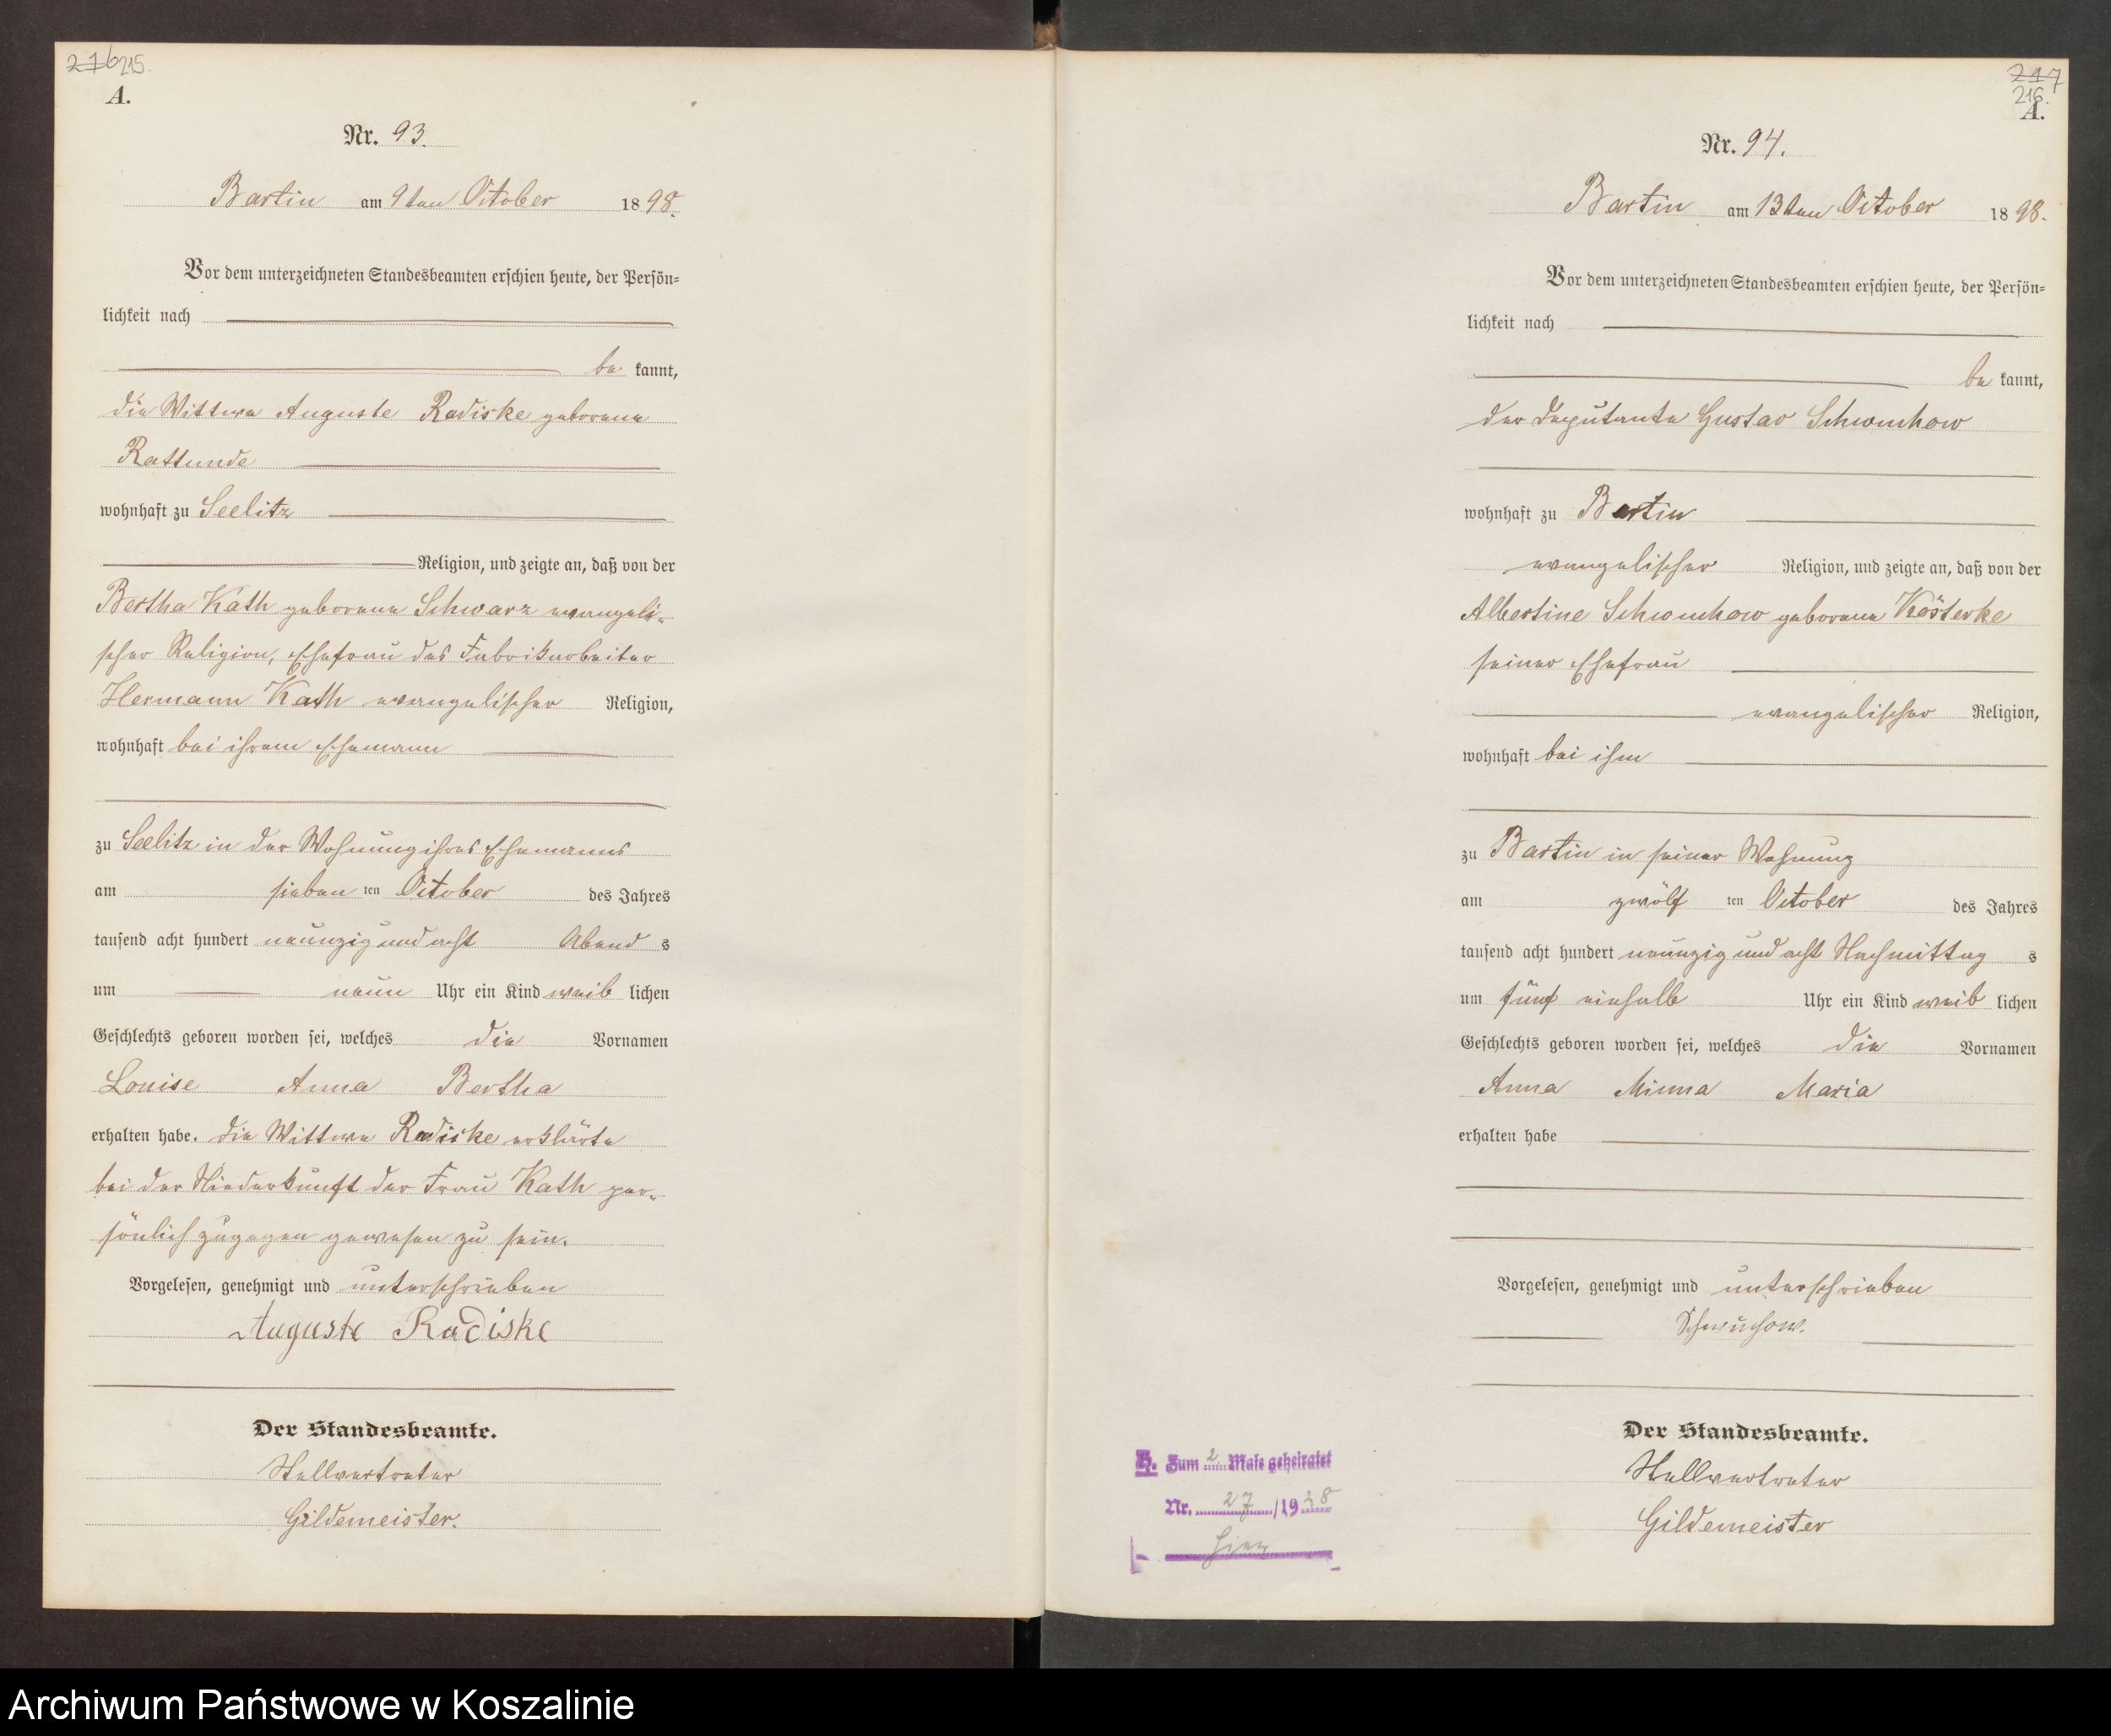 216 215.
A.
Nr. 93.
Bartin am 9ten October 1898.
Vor dem unterzeichneten Standesbeamten erschien heute, der Persön-
lichkeit nach
be kannt,
die Wittwe Auguste Radiske geborene
Rattunde
wohnhaft zu Seelitz
Religion, und zeigte an, daß von der
Bertha Kath geborene Schwarz evangeli-
scher Religion, Ehefrau des Fabrikarbeiter
Hermann Kath evangelischer Religion,
wohnhaft bei ihrem Ehemann
zu Seelitz in der Wohnung ihres Ehemanns
am sieben ten October des Jahres
tausend acht hundert neunzig und acht Abend s
um neun Uhr ein Kind weib lichen
Geschlechts geboren worden sei, welches die Vornamen
Louise Anna Bertha
erhalten habe. Die Wittwe Radiske erklärte
bei der Niederkunft der Frau Kath per-
sönlich zugegen gewesen zu sein.
Vorgelesen, genehmigt und unterschrieben
Auguste Radiske
Der Standesbeamte.
Stellvertreter
Gildemeister.
217
216.
A.
Nr. 94.
Bartin am 13ten October 1898.
Vor dem unterzeichneten Standesbeamten erschien heute, der Persön-
lichkeit nach
be kannt,
der Deputante Gustav Schwuchow
wohnhaft zu Bartin
evangelischer Religion, und zeigte an, daß von der
Albertine Schwuchow geborene Kösterke
seiner Ehefrau
evangelischer Religion,
wohnhaft bei ihm
zu Bartin in seiner Wohnung
am zwölf ten October des Jahres
tausend acht hundert neunzig und acht Nachmittag s
um fünf einhalb Uhr ein Kind weib lichen
Geschlechts geboren worden sei, welches die Vornamen
Anna Minna Maria
erhalten habe
Vorgelesen, genehmigt und unterschrieben
Schwuchow.
Der Standesbeamte.
Stellvertreter
Gildemeister
H. Zum 2 Male geheiratet
Nr. 27 /1938
hier
Archiwum Państwowe w Koszalinie